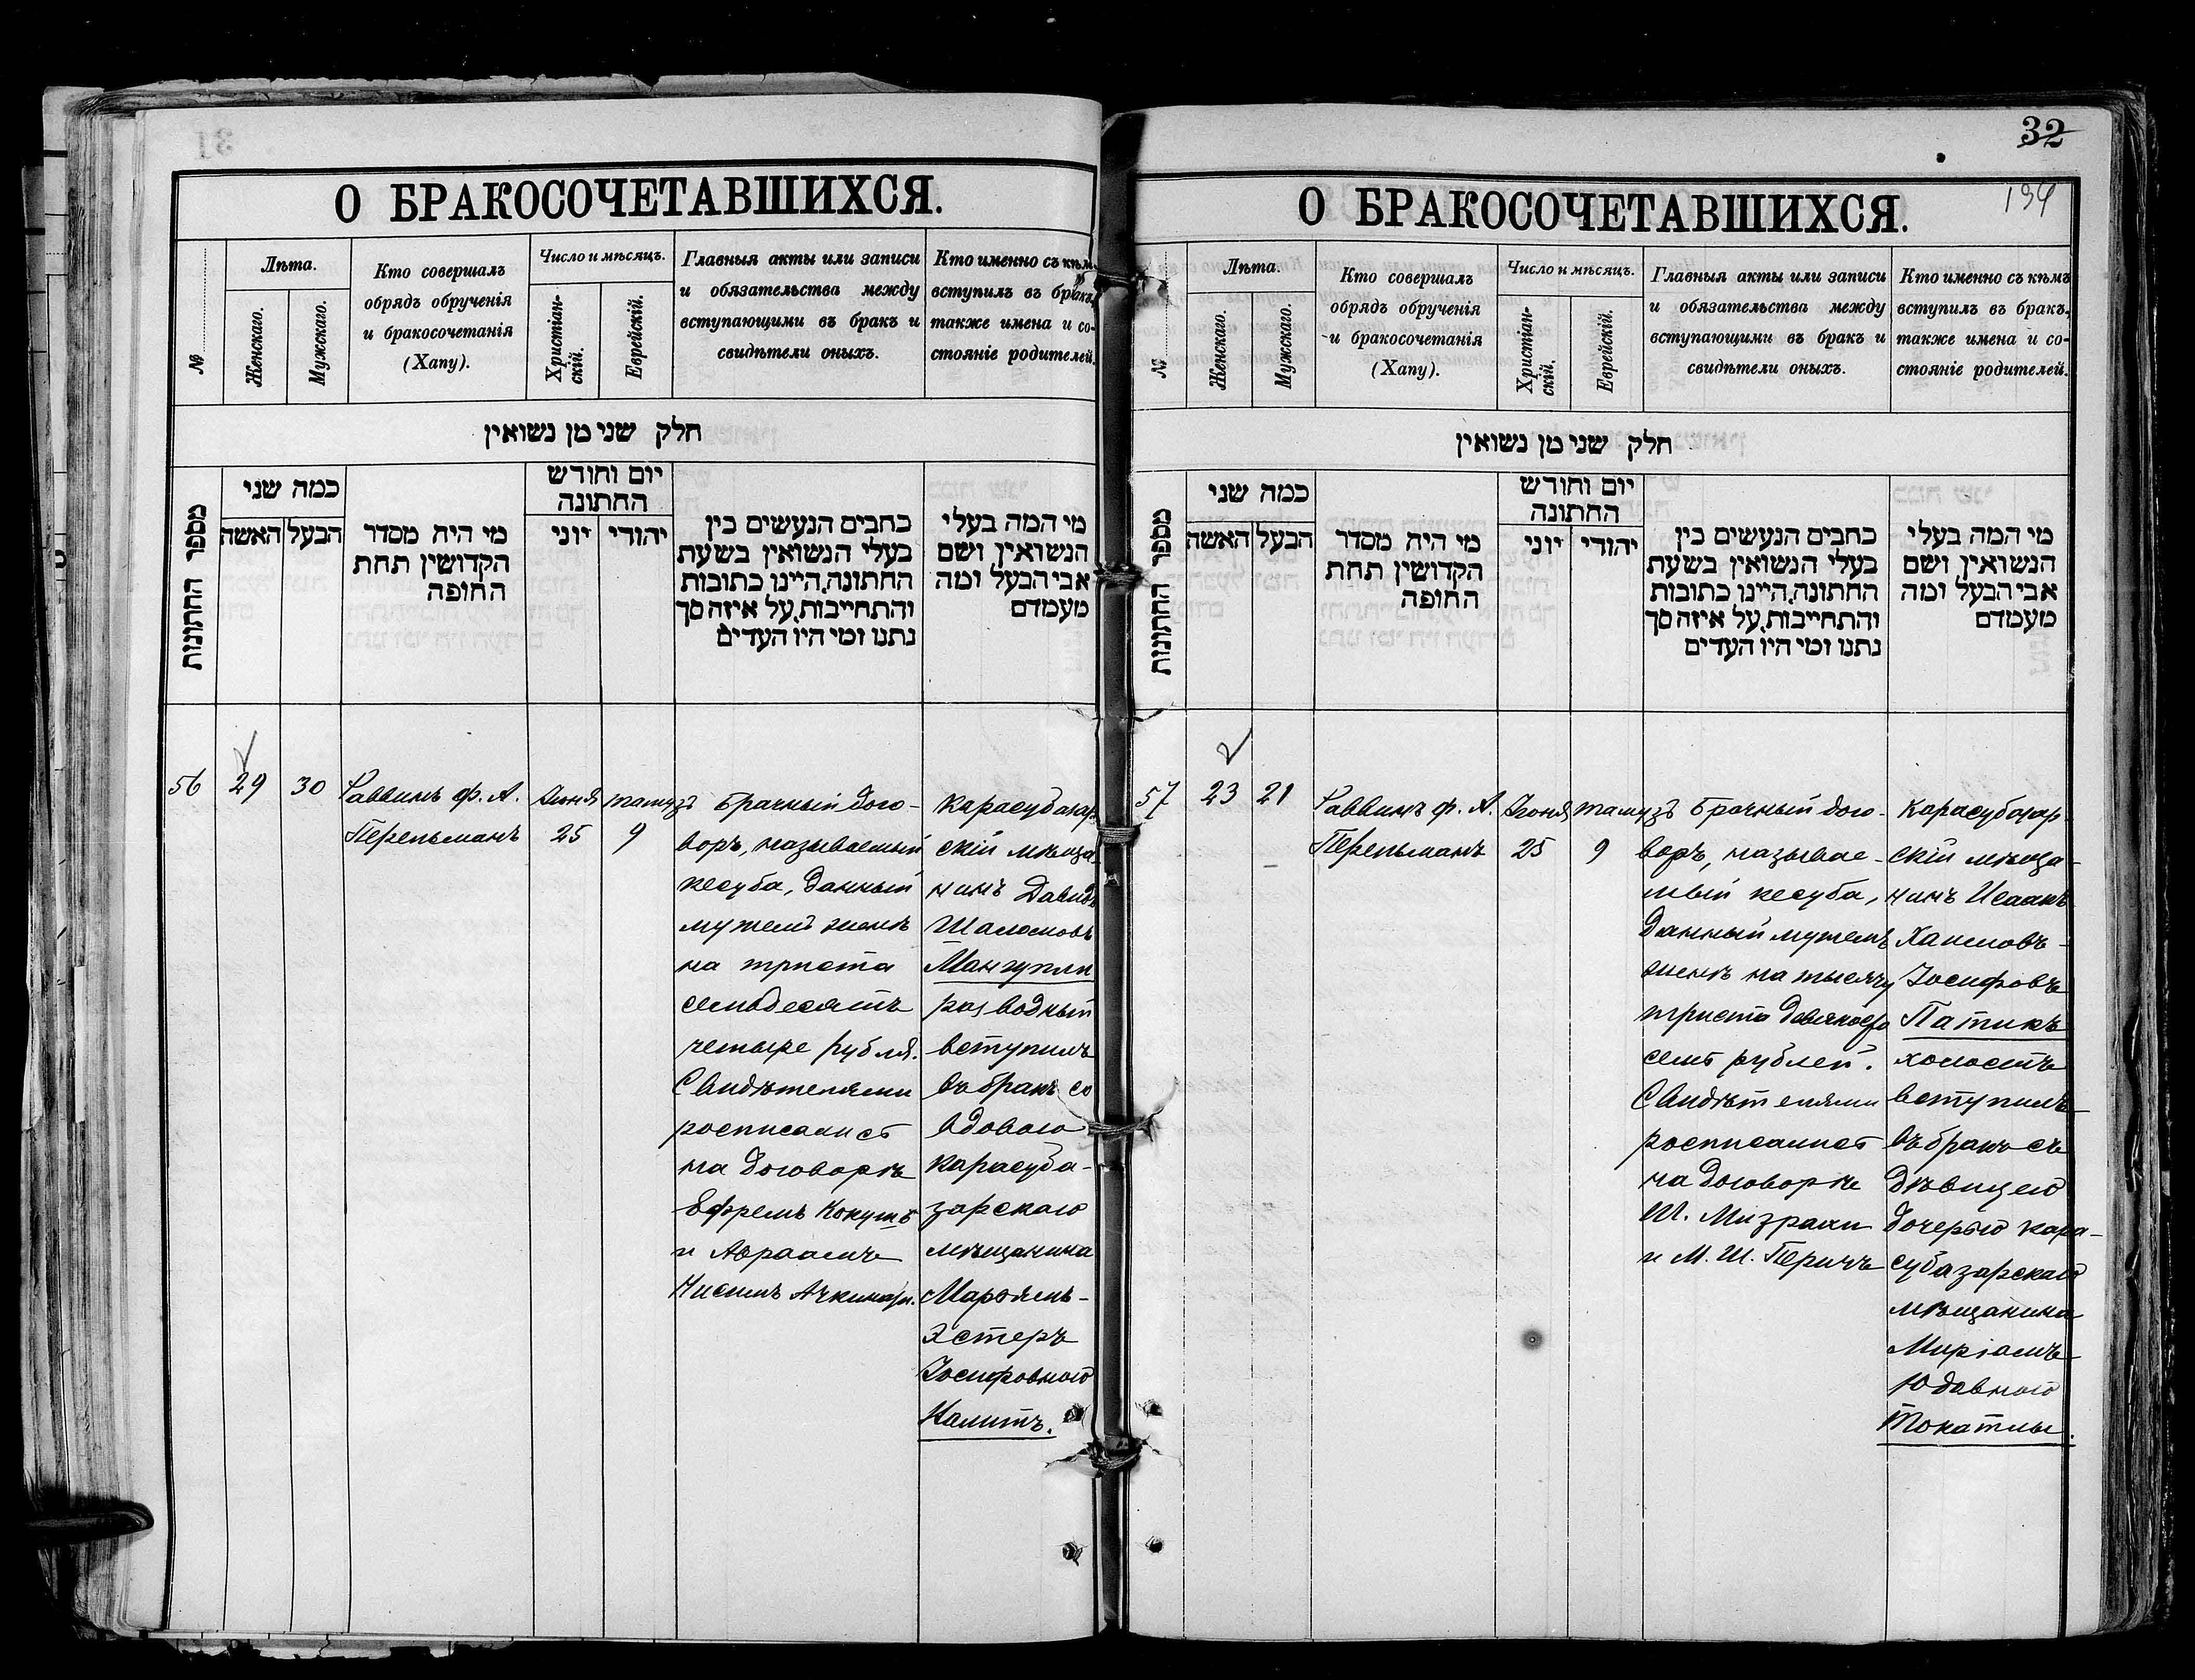 31
О БРАКОСОЧЕТАВШИХСЯ.
№
Лѣта.
Женскаго.
Мужскаго.
Кто совершалъ
обрядъ обрученія
и бракосочетанія
(Хапу).
Число и мѣсяцъ.
Христіан-
скій.
Еврейскій.
Главныя акты или записи
и обязательства между
вступающими въ бракъ и
свидѣтели оныхъ.
Кто именно съ кѣмъ
вступилъ въ бракъ,
также имена и со-
стояніе родителей.
חלק שני מן נשואין
מספר החתונות
כמה שני
הבעל
האשה
מי היה מסדר
הקדושין תחת
החופה
יום וחודש
החתונה
יהודי
יוני
כתבים הנעשים בין
בעלי הנשואין בשעת
החתונה, היינו כתובות
והתחייבות, על איזה סך
נתנו ומי היו העדים
מי המה בעלי
הנשואין ושם
אבי הבעל ומה
מעמדם
56
29
30
Раввинъ Ф. А.
Перельманъ
Іюня
25
тамузъ
9
Брачный дого-
воръ, называемый
кесуба, данный
мужемъ женѣ
на триста
семьдесятъ
четыре рубля.
Свидѣтелями
росписались
на договорѣ
Ефремъ Кокушъ
и Авраамъ
Нисимъ Ачкинази.
Карасубазар-
скій мѣща-
нинъ Давидъ
Шаломовъ
Мангупли
разводный
вступилъ
въ бракъ со
вдовою
карасуба-
зарскаго
мѣщанина
Эстеръ
Іосифовною
32
134
О БРАКОСОЧЕТАВШИХСЯ.
№
Лѣта.
Женскаго.
Мужскаго.
Кто совершалъ
обрядъ обрученія
и бракосочетанія
(Хапу).
Число и мѣсяцъ.
Христіан-
скій.
Еврейскій.
Главныя акты или записи
и обязательства между
вступающими въ бракъ и
свидѣтели оныхъ.
Кто именно съ кѣмъ
вступилъ въ бракъ,
также имена и со-
стояніе родителей.
חלק שני מן נשואין
מספר החתונות
כמה שני
הבעל
האשה
מי היה מסדר
הקדושין תחת
החופה
יום וחודש
החתונה
יהודי
יוני
כתבים הנעשים בין
בעלי הנשואין בשעת
החתונה, היינו כתובות
והתחייבות, על איזה סך
נתנו ומי היו העדים
מי המה בעלי
הנשואין ושם
אבי הבעל ומה
מעמדם
57
23
21
Раввинъ Ф. А.
Перельманъ
Іюня
25
тамузъ
9
Брачный дого-
воръ, называе-
мый кесуба,
данный мужемъ
женѣ на тысячу
триста девяносто
семь рублей.
Свидѣтелями
росписались
на договорѣ
Ш. Мизрахи
и М. Ш. Перичъ
Карасубазар-
скій мѣща-
нинъ Исаакъ
Хаимовъ-
Іосифовъ
Патикъ
холостъ
вступилъ
въ бракъ съ
дѣвицею
дочерью кара-
субазарскаго
мѣщанина
Миріамъ
Юдовною
Токатлы.